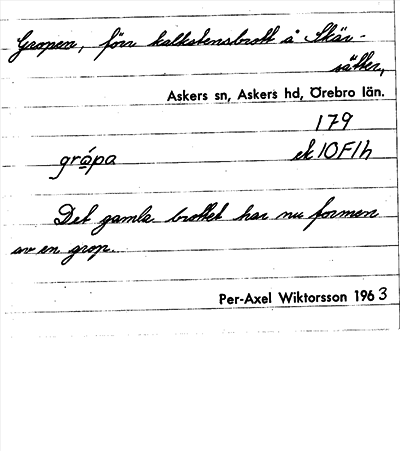 Gropen, förr kalkstensbrott å Skär-
sätter,
Askers sn, Askers hd, Örebro län.
179
grópa ek 10F1h
Det gamla brottet har nu formen
av en grop.
Per-Axel Wiktorsson 1963